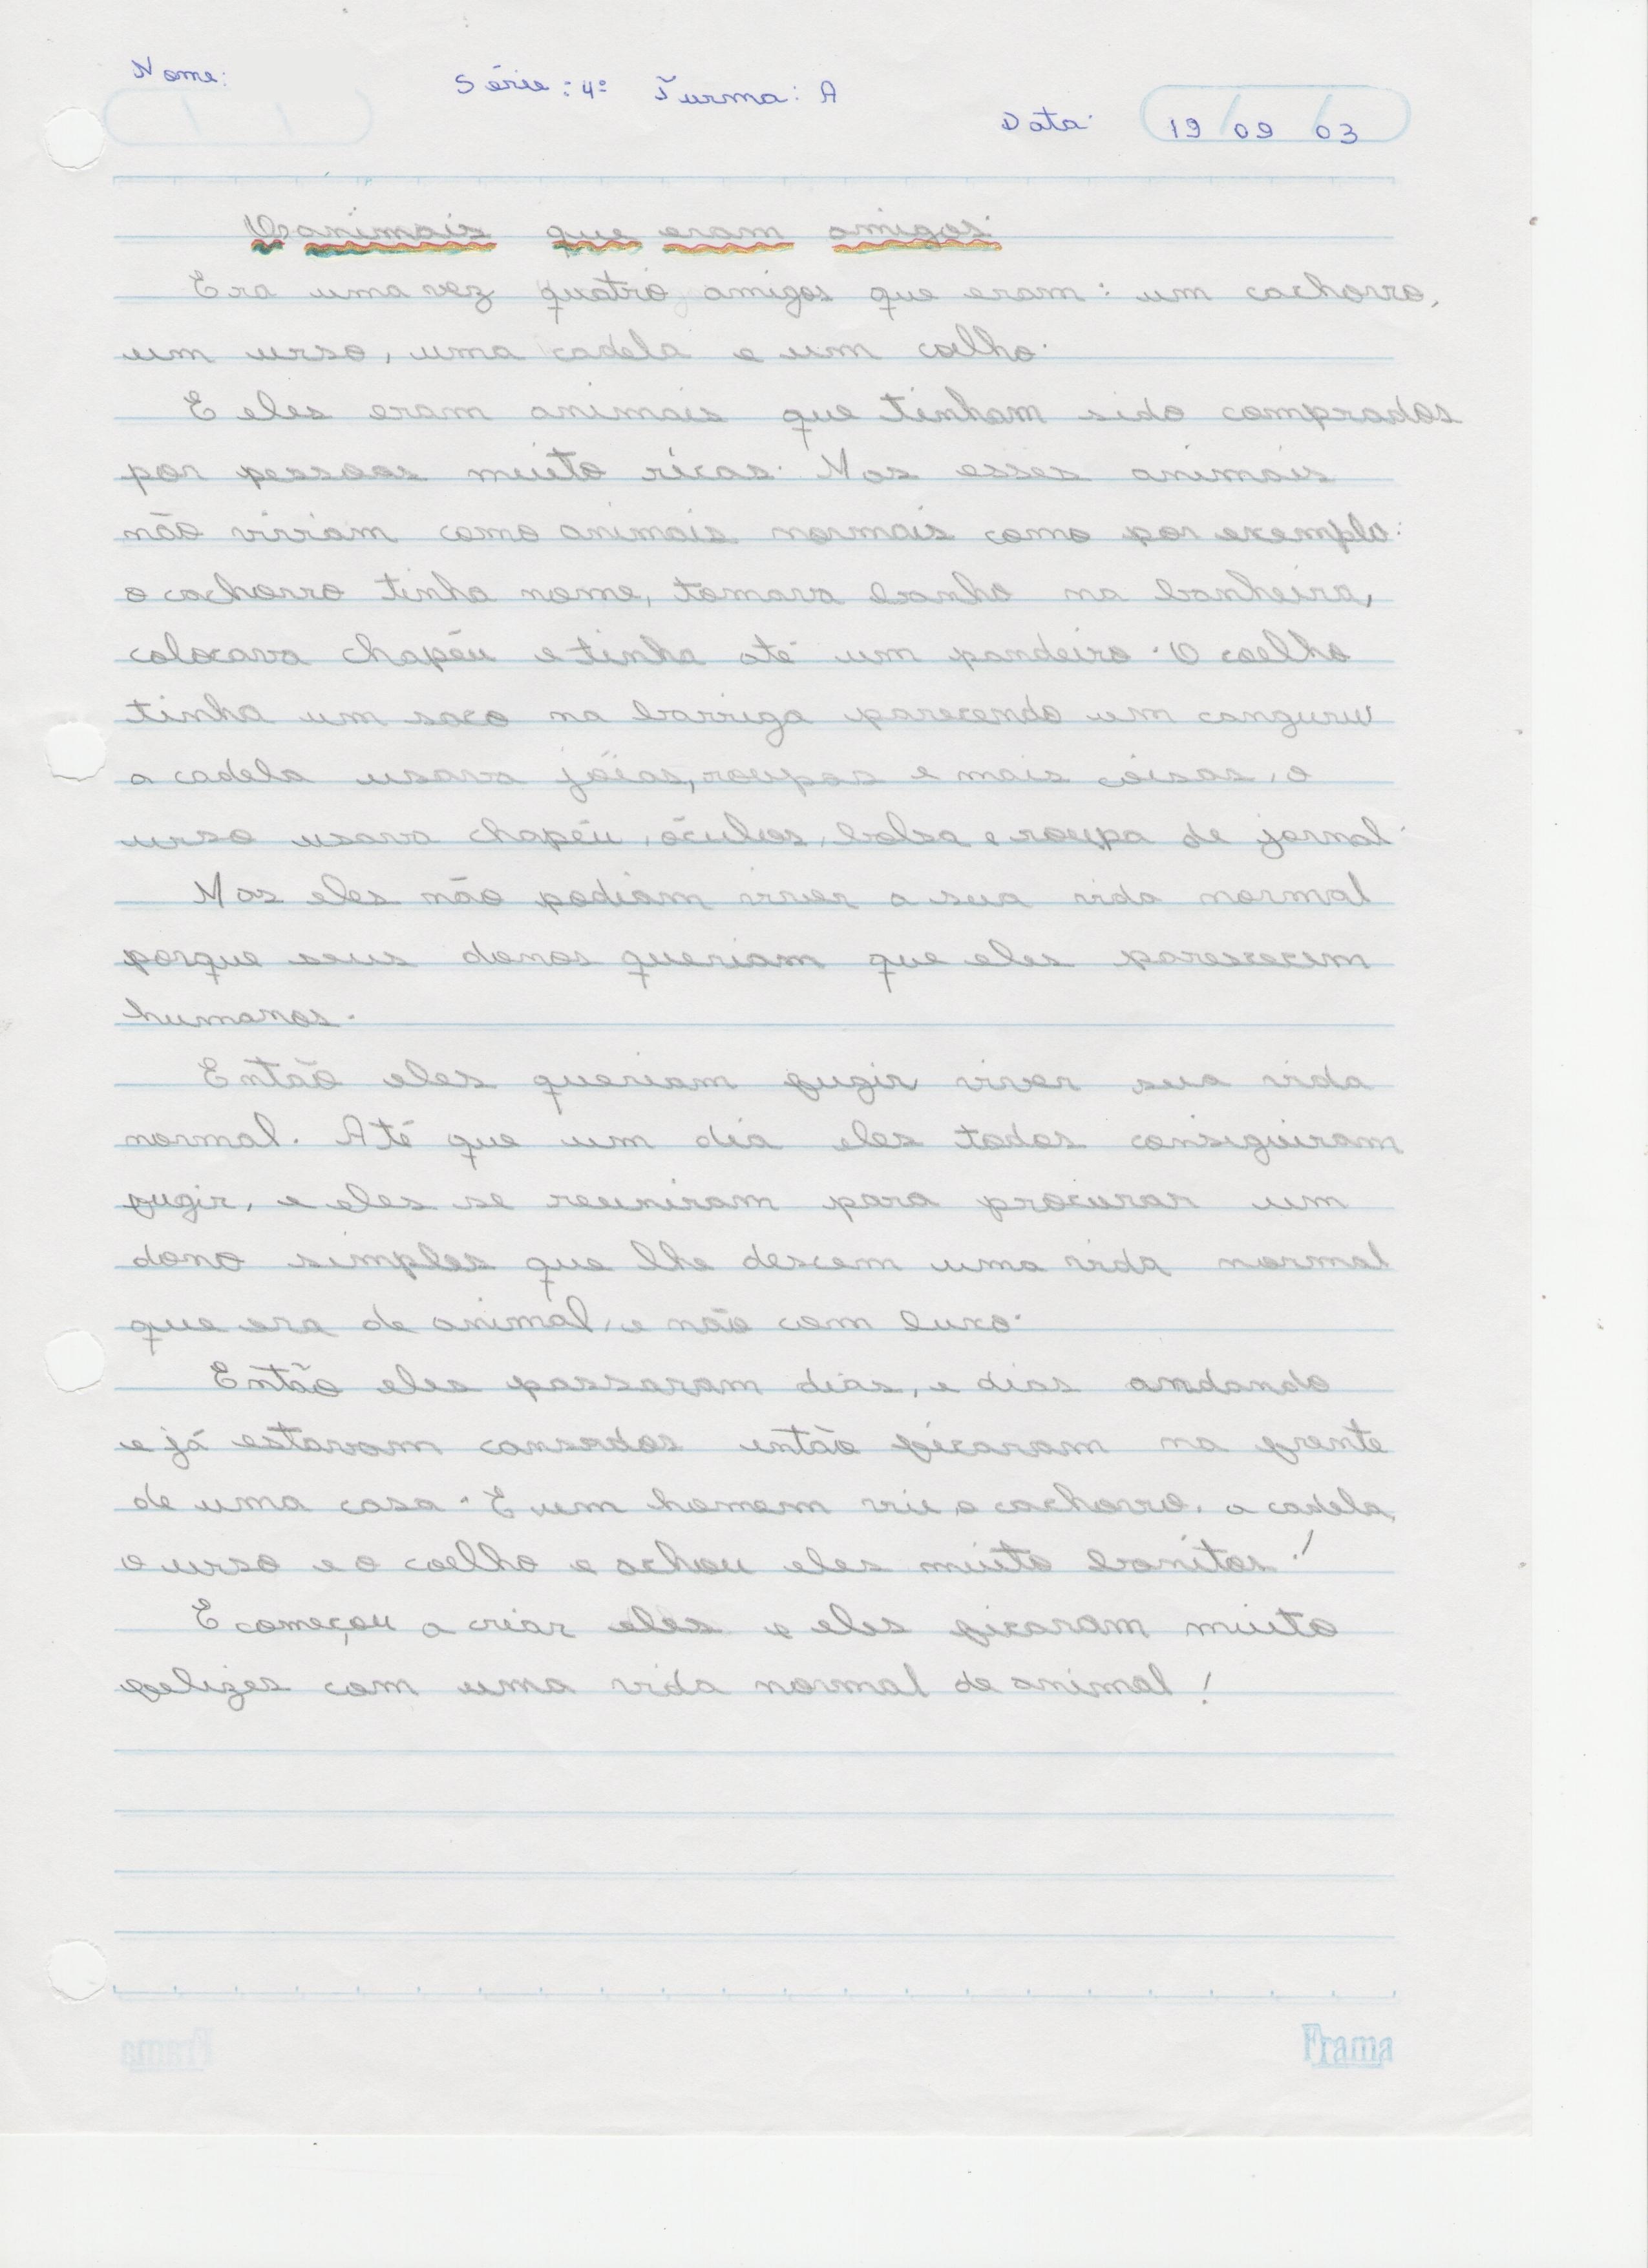 Nome:
Série: 4ª Turma: A
Data: 19 09 03
Os animais que eram amigos.
Era uma vez quatro amigos que eram: um cachorro,
um urso, uma cadela e um coelho.
E eles eram animais que tinham sido comprados
por pessoas muito ricas. Mas esses animais
não viviam como animais normais como por exemplo:
o cachorro tinha nome, tomava banho na banheira,
colocava chapéu e tinha até um pandeiro. O coelho
tinha um saco na barriga parecendo um canguru
a cadela usava jóias, roupas e mais coisas, o
urso usava chapéu, óculos, bolsa e roupa de jornal.
Mas eles não podiam viver a sua vida normal
porque seus donos queriam que eles parescecem
humanos.
Então eles queriam fugir viver sua vida
normal. Até que um dia eles todos conseguiram
fugir, e eles se reuniram para procurar um
dono simples que lhe descem uma vida normal
que era de animal, e não com luxo.
Então eles passaram dias, e dias andando
e já estavam cansados então ficaram na frente
de uma casa. E um homem viu o cachorro, a cadela,
o urso e o coelho e achou eles muito bonitos!
E começou a criar eles e eles ficaram muito
felizes com uma vida normal de animal!
Frama